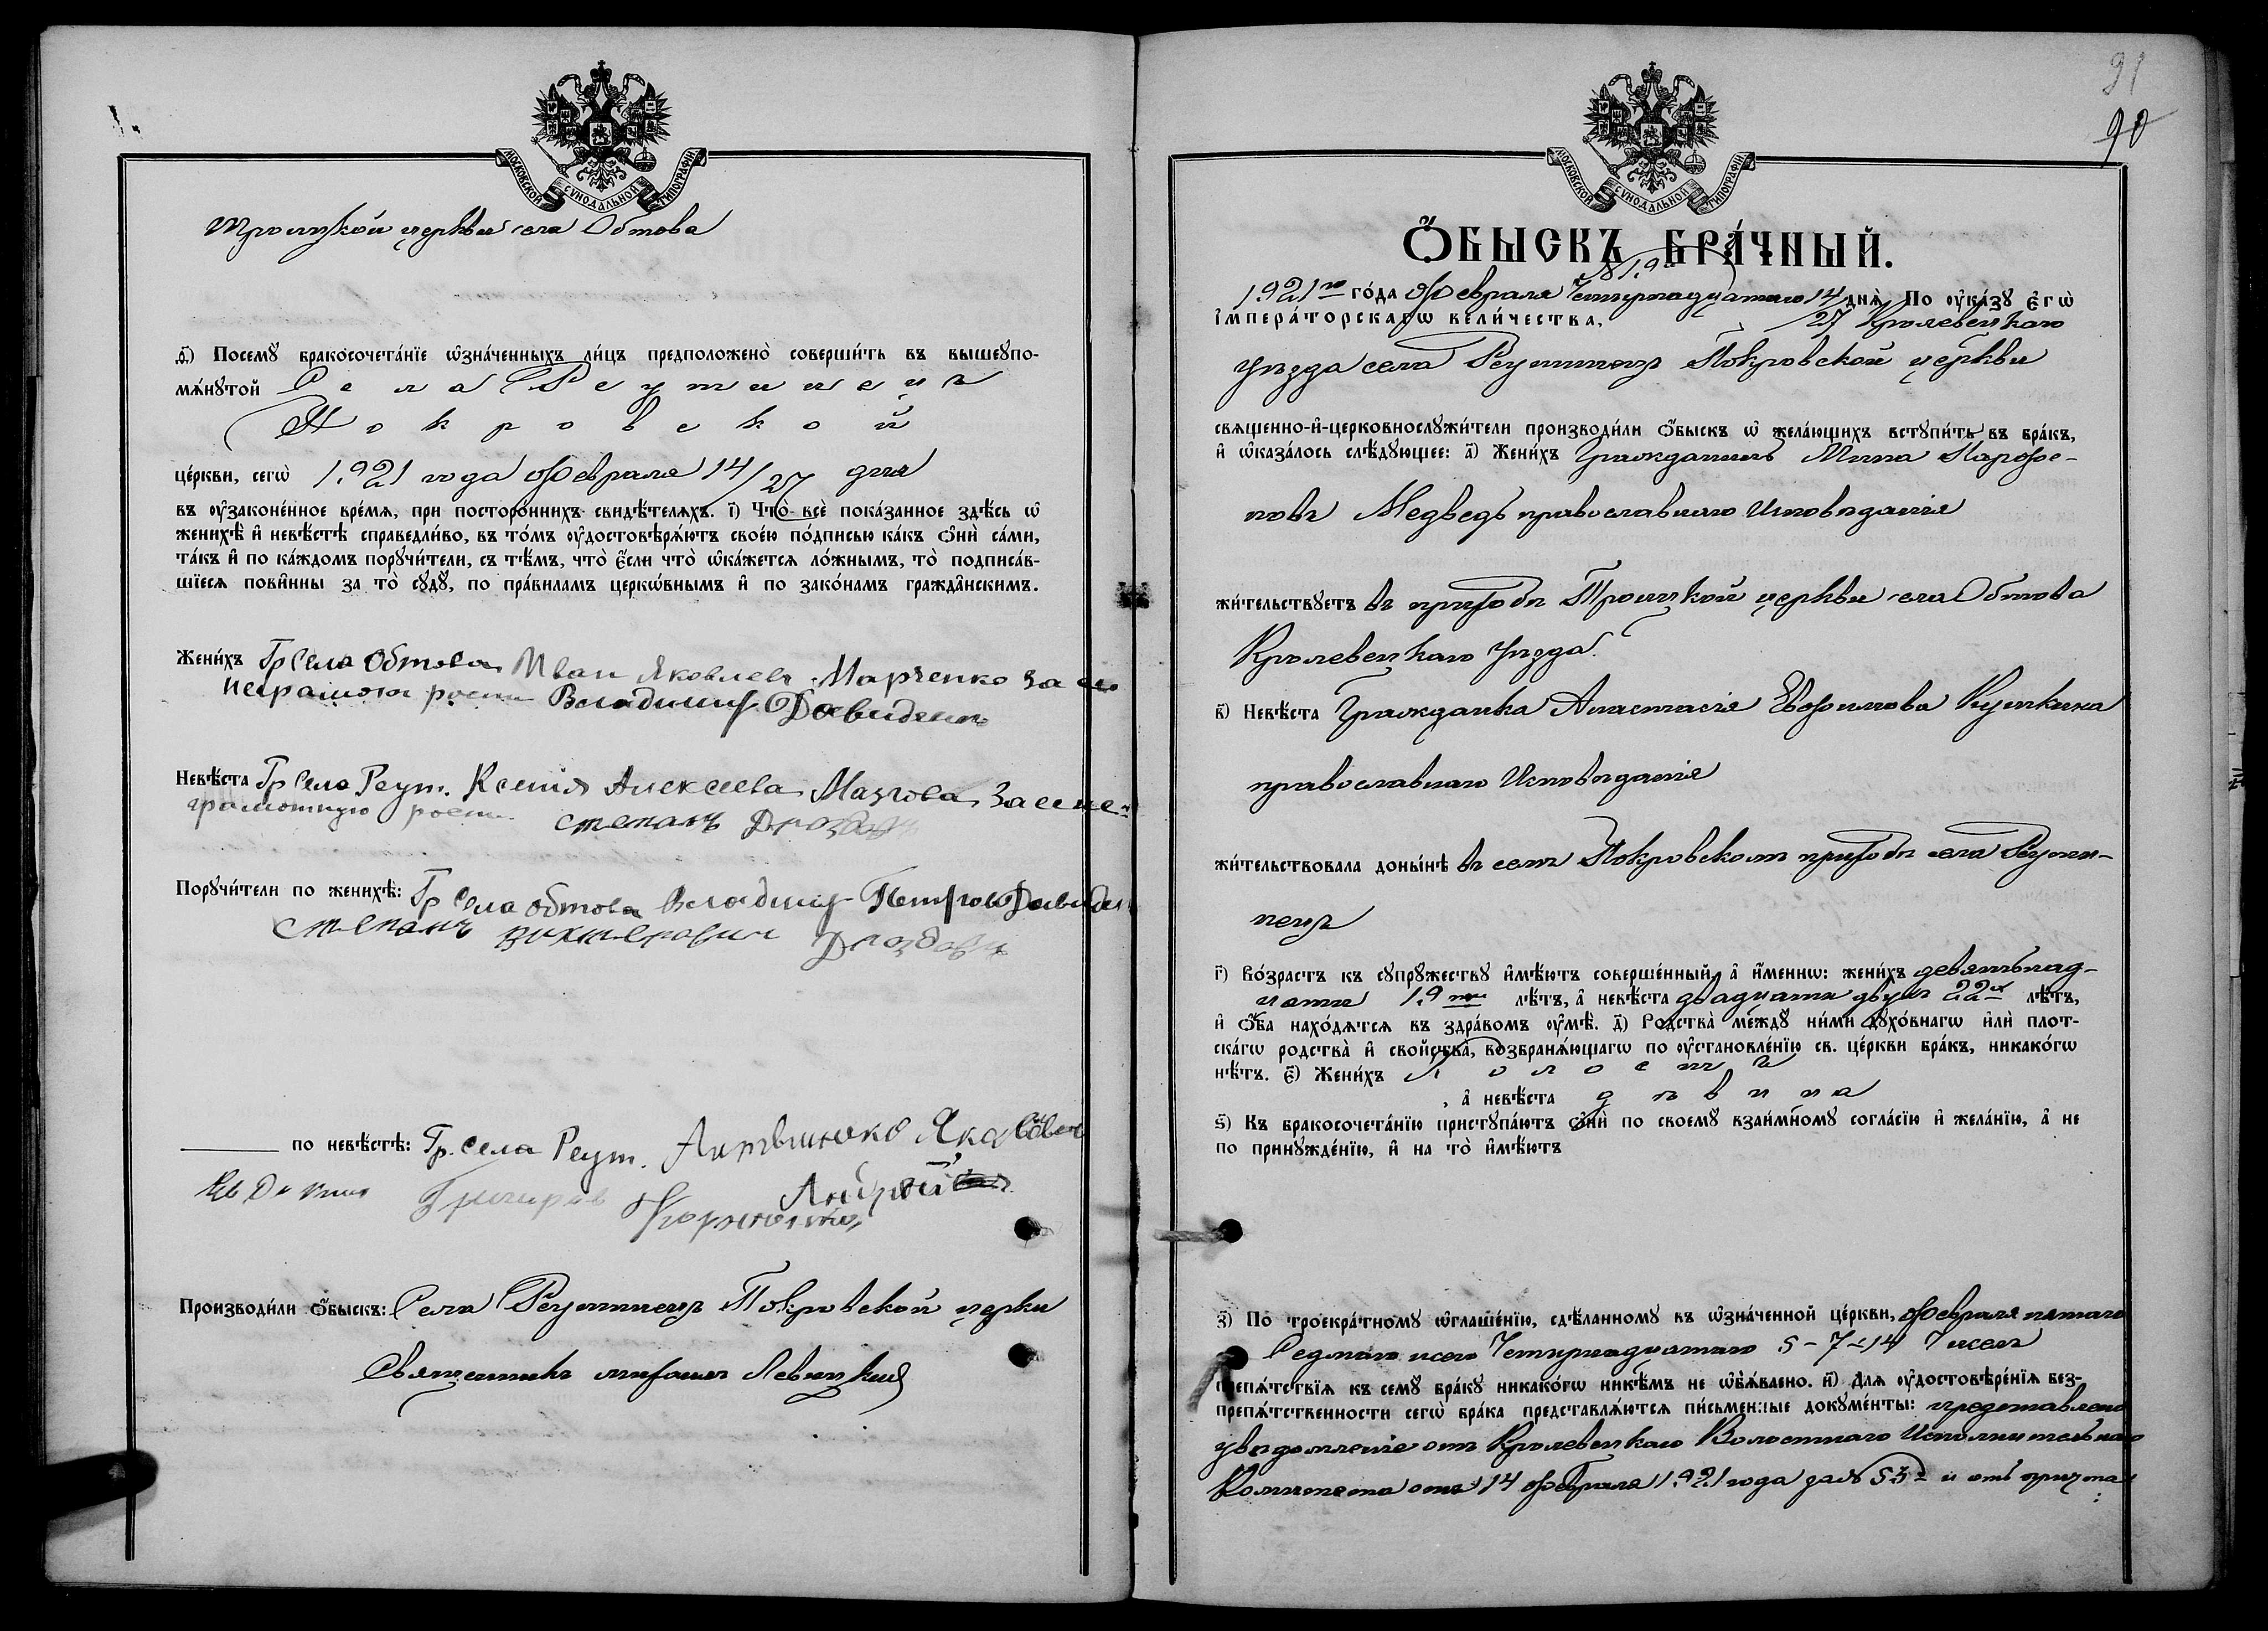 МОСКОВСКОЙ СѴНОДАЛЬНОЙ ТИПОГРАФІИ
Троицкой церкви села Обтова
ѳ҃) Посемꙋ бракосочета́нїе ѡ҆зна́ченныхъ ли́цъ предположено̀ соверши́ть въ вышеꙋпо-
мѧ́нꙋтой Села Реутинецъ
Покровской
це́ркви, сегѡ̀ 1921 года февраля 14/27 дня
въ ᲂу҆законе́нное вре́мѧ, при посторо́ннихъ свидѣ́телѧхъ. і҃) Что̀ всѐ пока́занное здѣ́сь ѡ҆
женихѣ̀ и҆ невѣ́стѣ справедли́во, въ то́мъ ᲂу҆достовѣрѧ́ютъ свое́ю по́дписью ка́къ ѻ҆нѝ са́ми,
та́къ и҆ по ка́ждомъ порꙋчи́тели, съ тѣ́мъ, что̀ є҆́сли что̀ ѡ҆ка́жетсѧ ло́жнымъ, то̀ подписа́в-
шїесѧ пови́нны за то̀ сꙋдꙋ̀, по пра́виламъ церкѡ́внымъ и҆ по зако́намъ гражда́нскимъ.
Жени́хъ Гр Села Обтова Иван Яковлев Марченко за его
неграмотн роспи Владимир Давиденко
Невѣ́ста Гр Села Реут. Ксенія Алексеева Мазгова За ее не-
грамотную роспи. степанъ Дроздовъ
Порꙋчи́тели по женихѣ̀: Гр Села обтова Владимир Петров Давиден
степанъ Дроздовъ
по невѣ́стѣ: Гр. села Реут. Яковлев
Григоров
Андрей
Производи́ли ѻ҆́быскъ: Села Реутинецъ Покровской церкви
Священникъ Левицкій
91
90
МОСКОВСКОЙ СѴНОДАЛЬНОЙ ТИПОГРАФІИ
Ѻ҆́БЫСКЪ БРА́ЧНЫЙ.
№ 19
1921го го́да февраля Четырнадцатаго 14/27 днѧ̀ По ᲂу҆ка́зꙋ є҆гѡ̀
і҆мпера́торскагѡ вели́чества, Кролевецкаго
уѣзда села Реутинецъ Покровской церкви
свѧщенно-и҆-церковнослꙋжи́тели производи́ли ѻ҆́быскъ ѡ҆ жела́ющихъ встꙋпи́ть въ бра́къ,
и҆ ѡ҆каза́лось слѣ́дꙋющее: а҃) Жени́хъ Гражданинъ Мина Парфе-
новъ Медведь православнаго Исповѣданія
жи́тельствꙋетъ въ приходѣ Троицкой церкви села Обтова
Кролевецкаго уѣзда.
в҃) Невѣ́ста Гражданка Анастасія Евфимова Купкина
православнаго Исповѣданія
жи́тельствовала доны́нѣ въ семъ Покровскомъ приходѣ села Реути-
нецъ
г҃) Во́зрастъ къ сꙋпрꙋ́жествꙋ и҆мѣ́ютъ соверше́нный, а҆ и҆́меннѡ: жени́хъ девятьнад-
цати 19ти лѣ́тъ, а҆ невѣ́ста двадцати двухъ 22х лѣ́тъ,
и҆ ѻ҆́ба нахо́дѧтсѧ въ здра́вомъ ᲂу҆мѣ̀. д҃) Родства̀ ме́ждꙋ ни́ми дꙋхо́внагѡ и҆лѝ плот-
ска́гѡ родства̀ и҆ свойства̀, возбранѧ́ющагѡ по ᲂу҆становле́нїю св. це́ркви бра́къ, никако́гѡ
нѣ́тъ. є҃) Жени́хъ холостъ
, а҆ невѣ́ста дѣвица
ѕ҃) Къ бракосочета́нїю пристꙋпа́ютъ ѻ҆нѝ по своемꙋ̀ взаи́мномꙋ согла́сїю и҆ жела́нїю, а҆ не
по принꙋжде́нїю, и҆ на то̀ и҆мѣ́ютъ
з҃) По троекра́тномꙋ ѡ҆глаше́нїю, сдѣ́ланномꙋ въ ѡ҆зна́ченной це́ркви, февраля пятаго
Седмаго и сего Четырнадцатаго 5-7-14 Чиселъ
препѧ́тствїѧ къ семꙋ̀ бра́кꙋ никако́гѡ никѣ́мъ не ѡ҆б̾ѧ́влено. и҃) Длѧ ᲂу҆достовѣре́нїѧ без-
препѧ́тственности сегѡ̀ бра́ка представлѧ́ютсѧ пи́сьменные докꙋме́нты: представлено
увѣдомленіе отъ Кролевецкаго Волостнаго Исполнительнаго
Комитета отъ 14 февраля 1921 года за № 53 и отъ причта